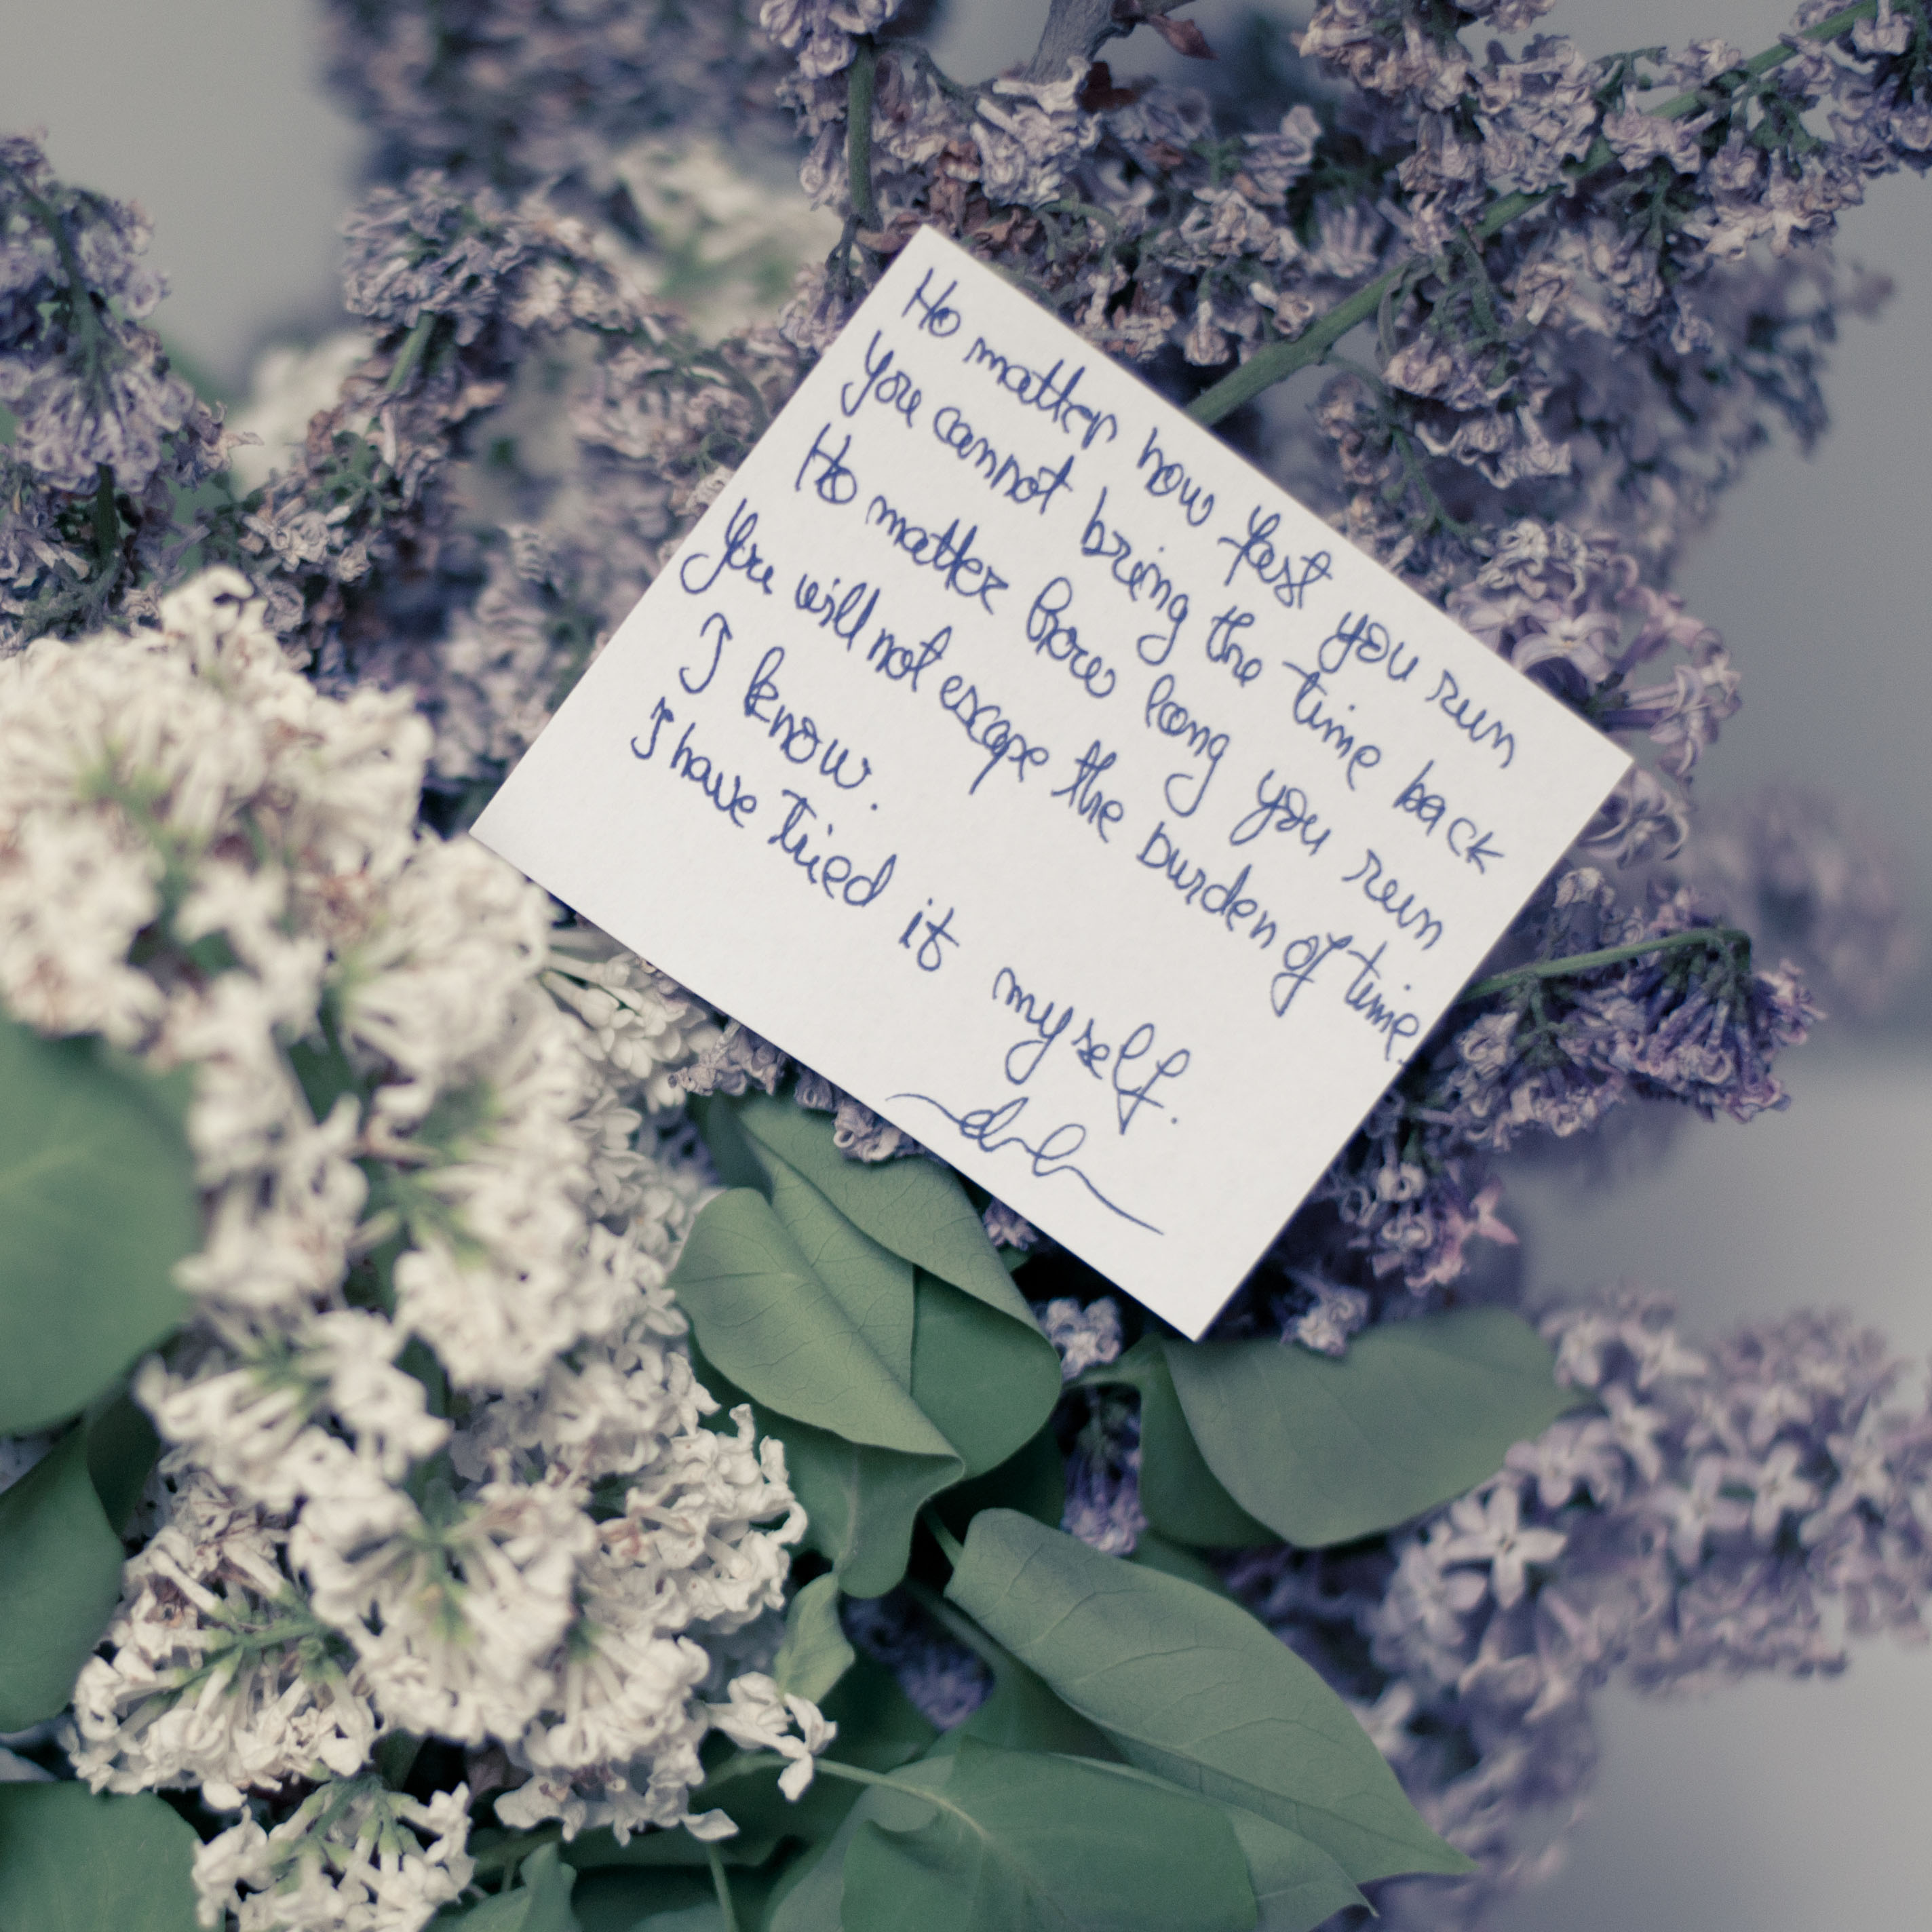 No matter how fast you run
you cannot bring the time back
No matter how long you run
you will not escape the burden of time.
I know.
I have tried it myself.